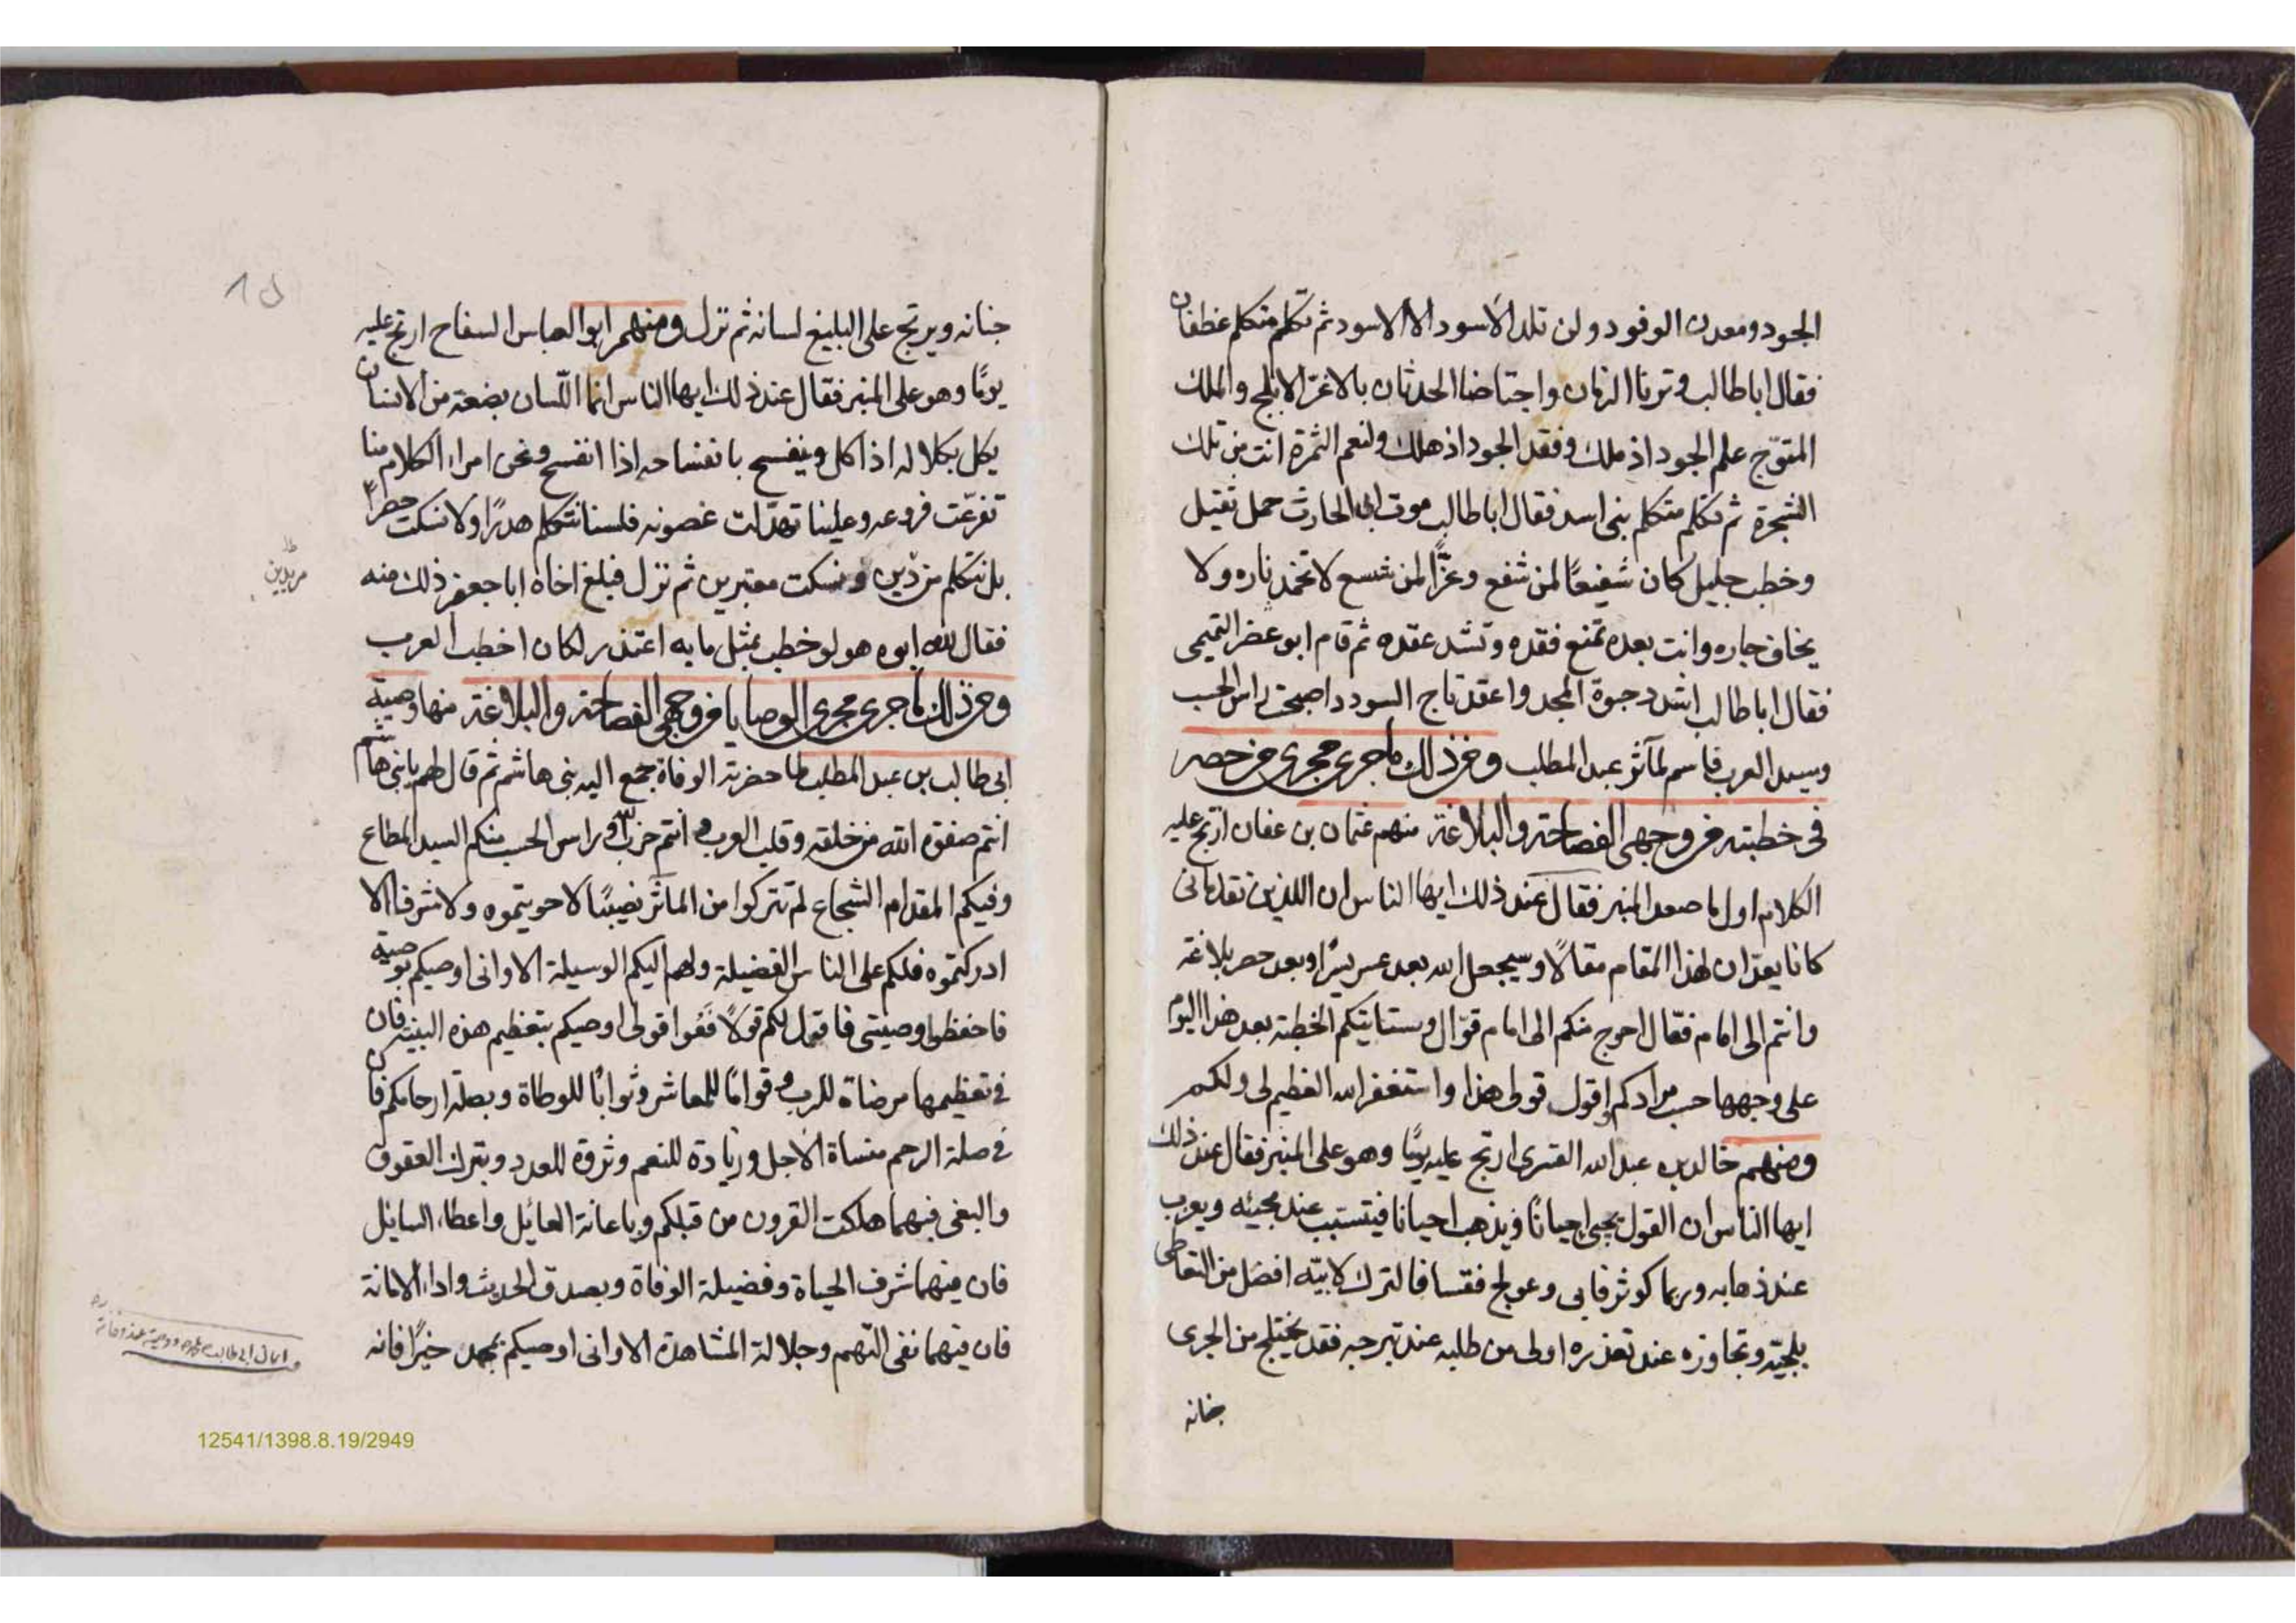 الجود ومعدن الوفود ولن تلد الاسود الا الاسود ثم تكلم متكلم غطفان
فقال اباطالب وترنا الزمان واجتاضنا الحدثان بالاغرّ الابلج والملك
المتوّج علم الجود اذ ملك وفقد الجود اذ هلك ولنعم الثمرة انت من تلك
الشجرة ثم تكلم متكلم بنى اسد فقال اباطالب موت ابى الحارث حمل ثقيل
وخطب جليل كان شفيعًا لمن شفع وعزًّا لمن شسع لا تخمد ناره ولا
يخاف جاره وانت بعده تمنع فقده وتشد عقده ثم قام ابو التميمى
فقال اباطالب حبوة المجد واعقد تاج السودد اصبحت راس الحسب
وسيد العرب فاسم لمآثر عبد المطلب ومن ذلك ما جرى مجرى من حصر
فى خطبته من وجهى الفصاحة والبلاغة منهم عثمان بن عفان ارتج عليه
الكلام اول ما صعد المنبر فقال عند ذلك ايها الناس ان اللذين تقدمانى
كانا يعدّان لهذا المقام مقالاً وسيجعل الله بعد عسر يسرًا وبعد حصر بلاغة
وانتم الى امام فعّال احوج منكم الى امام قوّال وستاتيكم الخطبة بعد هذا اليوم
على وجهها حسب مرادكم اقول قولى هذا واستغفر الله العظيم لى ولكم
ومنهم خالد بن عبد الله القسرى ارتج عليه يومًا وهو على المنبر فقال عند ذلك
ايها الناس ان القول يجيئ احيانًا ويذهب احيانا فيتسبب عند مجيئه ويعزب
عند ذهابه وربما كوثر فابى وعولج فقسا فالترك لابيّه افضل من التعاطى
بلجيّه وتجاوزه عند تعذره اولى من طلبه عند تبرحه فقد يختلج من الجرى
جنانه
جنانه ويرتج على البليغ لسانه ثم نزل ومنهم ابو العباس السفاح ارتج عليه
يومًا وهو على المنبر فقال عند ذلك ايها الناس انما اللسان بضعة من الانسان
يكل بكلاله اذا كل وينفسح بانفساحه اذا انفسح ونحن امراء الكلام منا
تفرّعت فروعه وعلينا تهدّلت غصونه فلسنا نتكلم هدرًا ولا نسكت حصرًا
بل نتكلم ونسكت معتبرين ثم نزل فبلغ اخاه ابا جعفر ذلك منه
فقال لله ابوه هو لو خطب بمثل ما به اعتذر لكان اخطب العرب
ومن ذلك ما جرى مجرى الوصايا من وجهى الفصاحة والبلاغة منها وصية
ابى طالب بن عبد المطلب لما حضرته الوفاة جمع اليه بنى هاشم ثم قال لهم يا بنى هاشم
انتم صفوة الله من خلقه وقلب العرب انتم حزب الله وراس الحسب منكم السيد المطاع
وفيكم المقدام الشجاع لم تتركوا من المآثر نصيبًا الا حويتموه ولا شرفا الا
ادركتموه فلكم على الناس الفضيلة ولهم اليكم الوسيلة الا وانى اوصيكم بوصية
فاحفظوا وصيتى فاقول لكم قولاً فعُوا قولى اوصيكم بتعظيم هذه البنية فان
فى تعظيمها مرضاة للرب وقوامًا للمعاش وثوابًا للوطاة وبصلة ارحامكم فان
فى صلة الرحم منساة الاجل وزيادة للنعم وثروة للعدد وبترك العقوق
والبغى فبهما هلكت القرون من قبلكم وباعانة العائل واعطاء السايل
فان فيهما شرف الحياة وفضيلة الوفاة وبصدق الحديث واداء الامانة
فان فيهما نفى التهم وجلالة المشاهدة الا وانى اوصيكم بمحمد خيرًا فانه
12541/1398.8.19/2949